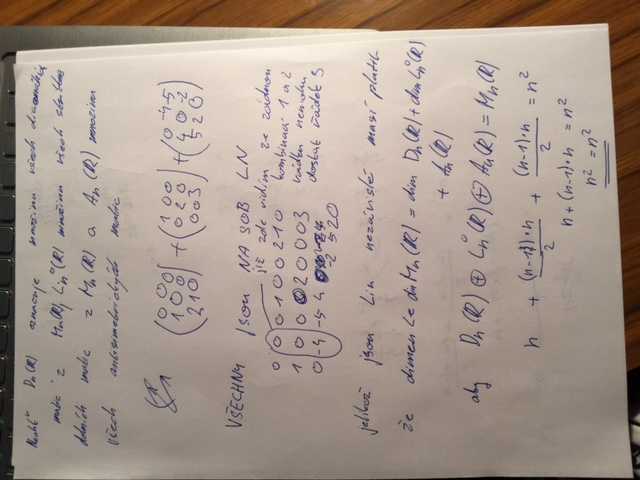 Nechť Dn(R) označuje množinu všech diagonálních
matic z Mn(R), Ln°(R) množinu všech striktně
dolních matic z Mn(R) a An(R) množinu
všech antisymetrických matic
(0 0 0 / 1 0 0 / 2 1 0) + (1 0 0 / 0 2 0 / 0 0 3) + (0 -4 -5 / 4 0 -2 / 5 2 0)
VŠECHNY jsou NA SOB LN
již zde vidím ze žádnou
kombinací 1 a 2
řádku nemohu
dostat řádek 3
0 0 0 1 0 0 2 1 0
1 0 0 0 2 0 0 0 3
0 -4 -5 4 -2 5 2 0
jelikož jsou lin nezávislé musí platit
že dimenze dim Mn(R) = dim Dn(R) + dim Ln°(R)
+ An(R)
aby Dn(R) ⊕ Ln°(R) ⊕ An(R) = Mn(R)
n + (n-1)·n / 2 + (n-1)·n / 2 = n²
n + (n-1)·n = n²
n² = n²